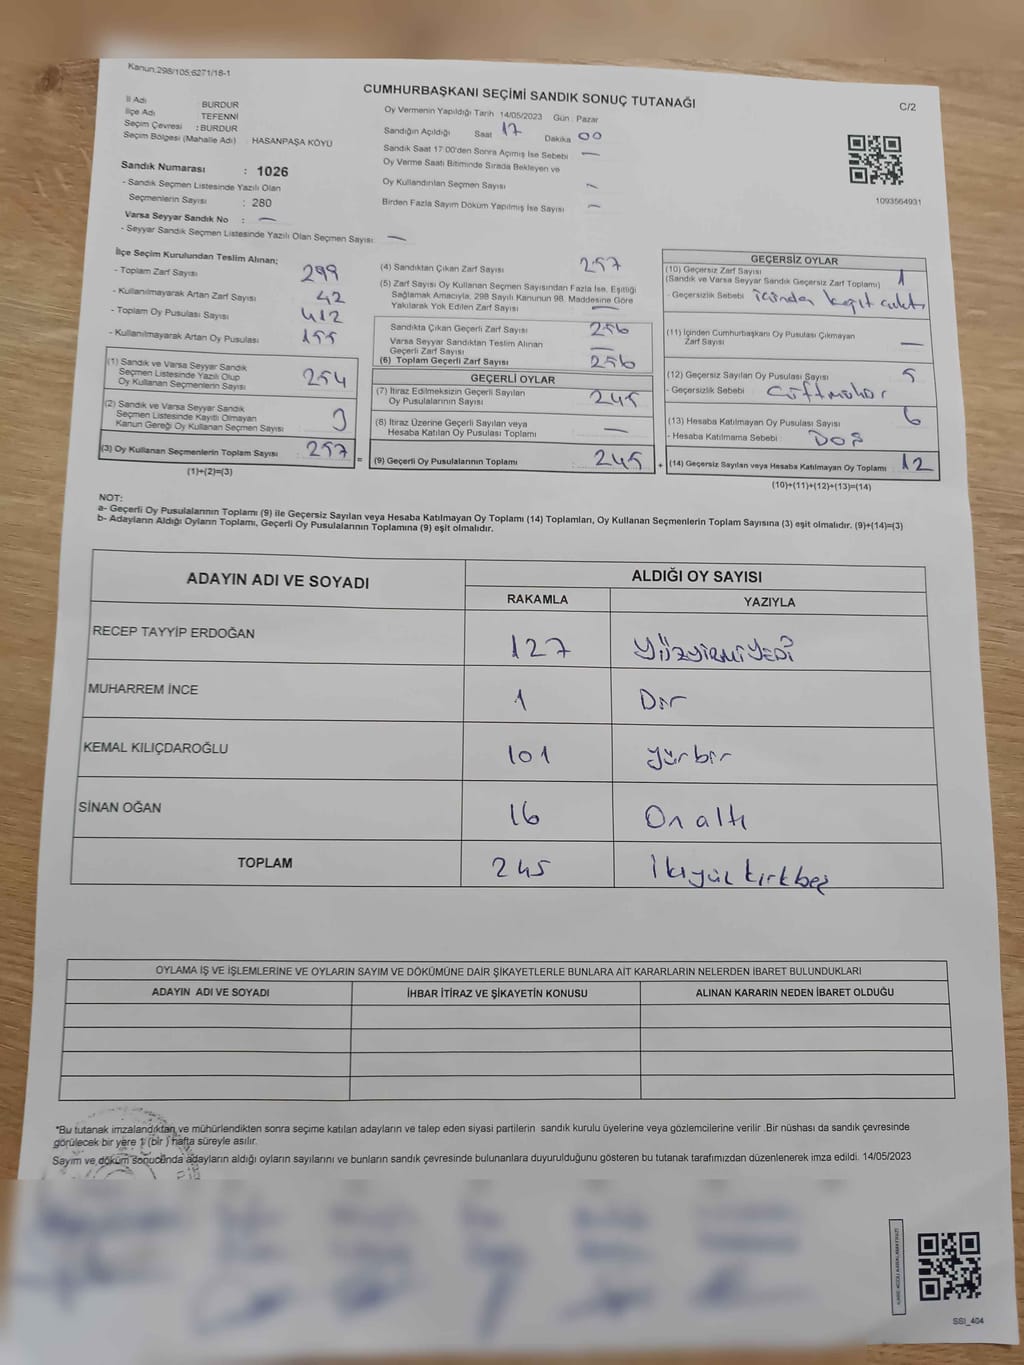 Kanun,298/105;6271/18-1
CUMHURBAŞKANI SEÇİMİ SANDIK SONUÇ TUTANAĞI
C/2
İl Adı BURDUR
İlçe Adı TEFENNİ
Seçim Çevresi : BURDUR
Seçim Bölgesi (Mahalle Adı) HASANPAŞA KÖYÜ
Sandık Numarası : 1026
- Sandık Seçmen Listesinde Yazılı Olan
Seçmenlerin Sayısı : 280
Varsa Seyyar Sandık No : —
- Seyyar Sandık Seçmen Listesinde Yazılı Olan Seçmen Sayısı: —
Oy Vermenin Yapıldığı Tarih 14/05/2023 Gün : Pazar
Sandığın Açıldığı Saat 17 Dakika 00
Sandık Saat 17:00'den Sonra Açımış İse Sebebi —
Oy Verme Saati Bitiminde Sırada Bekleyen ve
Oy Kullandırılan Seçmen Sayısı —
Birden Fazla Sayım Döküm Yapılmış İse Sayısı —
1093564931
İlçe Seçim Kurulundan Teslim Alınan;
- Toplam Zarf Sayısı 299
- Kullanılmayarak Artan Zarf Sayısı 42
- Toplam Oy Pusulası Sayısı 412
- Kullanılmayarak Artan Oy Pusulası 155
(1) Sandık ve Varsa Seyyar Sandık
Seçmen Listesinde Yazılı Olup
Oy Kullanan Seçmenlerin Sayısı 254
(2) Sandık ve Varsa Seyyar Sandık
Seçmen Listesinde Kayıtlı Olmayan
Kanun Gereği Oy Kullanan Seçmen Sayısı 3
(3) Oy Kullanan Seçmenlerin Toplam Sayısı 257 =
(1)+(2)=(3)
(4) Sandıktan Çıkan Zarf Sayısı 257
(5) Zarf Sayısı Oy Kullanan Seçmen Sayısından Fazla İse, Eşitliği
Sağlamak Amacıyla, 298 Sayılı Kanunun 98. Maddesine Göre
Yakılarak Yok Edilen Zarf Sayısı —
Sandıkta Çıkan Geçerli Zarf Sayısı 256
Varsa Seyyar Sandıktan Teslim Alınan
Geçerli Zarf Sayısı —
(6) Toplam Geçerli Zarf Sayısı 256
GEÇERLİ OYLAR
(7) İtiraz Edilmeksizin Geçerli Sayılan
Oy Pusulalarının Sayısı 245
(8) İtiraz Üzerine Geçerli Sayılan veya
Hesaba Katılan Oy Pusulası Toplamı —
(9) Geçerli Oy Pusulalarının Toplamı 245 +
GEÇERSİZ OYLAR
(10) Geçersiz Zarf Sayısı 1
(Sandık ve Varsa Seyyar Sandık Geçersiz Zarf Toplamı)
- Geçersizlik Sebebi içinden kağıt çıktı
(11) İçinden Cumhurbaşkanı Oy Pusulası Çıkmayan
Zarf Sayısı —
(12) Geçersiz Sayılan Oy Pusulası Sayısı 5
- Geçersizlik Sebebi Çiftmühür
(13) Hesaba Katılmayan Oy Pusulası Sayısı 6
- Hesaba Katılmama Sebebi Boş
(14) Geçersiz Sayılan veya Hesaba Katılmayan Oy Toplamı 12
(10)+(11)+(12)+(13)=(14)
NOT:
a- Geçerli Oy Pusulalarının Toplamı (9) ile Geçersiz Sayılan veya Hesaba Katılmayan Oy Toplamı (14) Toplamları, Oy Kullanan Seçmenlerin Toplam Sayısına (3) eşit olmalıdır. (9)+(14)=(3)
b- Adayların Aldığı Oyların Toplamı, Geçerli Oy Pusulalarının Toplamına (9) eşit olmalıdır.
ADAYIN ADI VE SOYADI ALDIĞI OY SAYISI
RAKAMLA YAZIYLA
RECEP TAYYİP ERDOĞAN 127 YÜZYİRMİYEDİ
MUHARREM İNCE 1 Bir
KEMAL KILIÇDAROĞLU 101 yüzbir
SİNAN OĞAN 16 On altı
TOPLAM 245 İkiyüz kırkbeş
OYLAMA İŞ VE İŞLEMLERİNE VE OYLARIN SAYIM VE DÖKÜMÜNE DAİR ŞİKAYETLERLE BUNLARA AİT KARARLARIN NELERDEN İBARET BULUNDUKLARI
ADAYIN ADI VE SOYADI İHBAR İTİRAZ VE ŞİKAYETİN KONUSU ALINAN KARARIN NEDEN İBARET OLDUĞU
*Bu tutanak imzalandıktan ve mühürlendikten sonra seçime katılan adayların ve talep eden siyasi partilerin sandık kurulu üyelerine veya gözlemcilerine verilir .Bir nüshası da sandık çevresinde
görülecek bir yere 1 (bir ) hafta süreyle asılır.
Sayım ve döküm sonucunda adayların aldığı oyların sayılarını ve bunların sandık çevresinde bulunanlara duyurulduğunu gösteren bu tutanak tarafımızdan düzenlenerek imza edildi. 14/05/2023
SSI_404